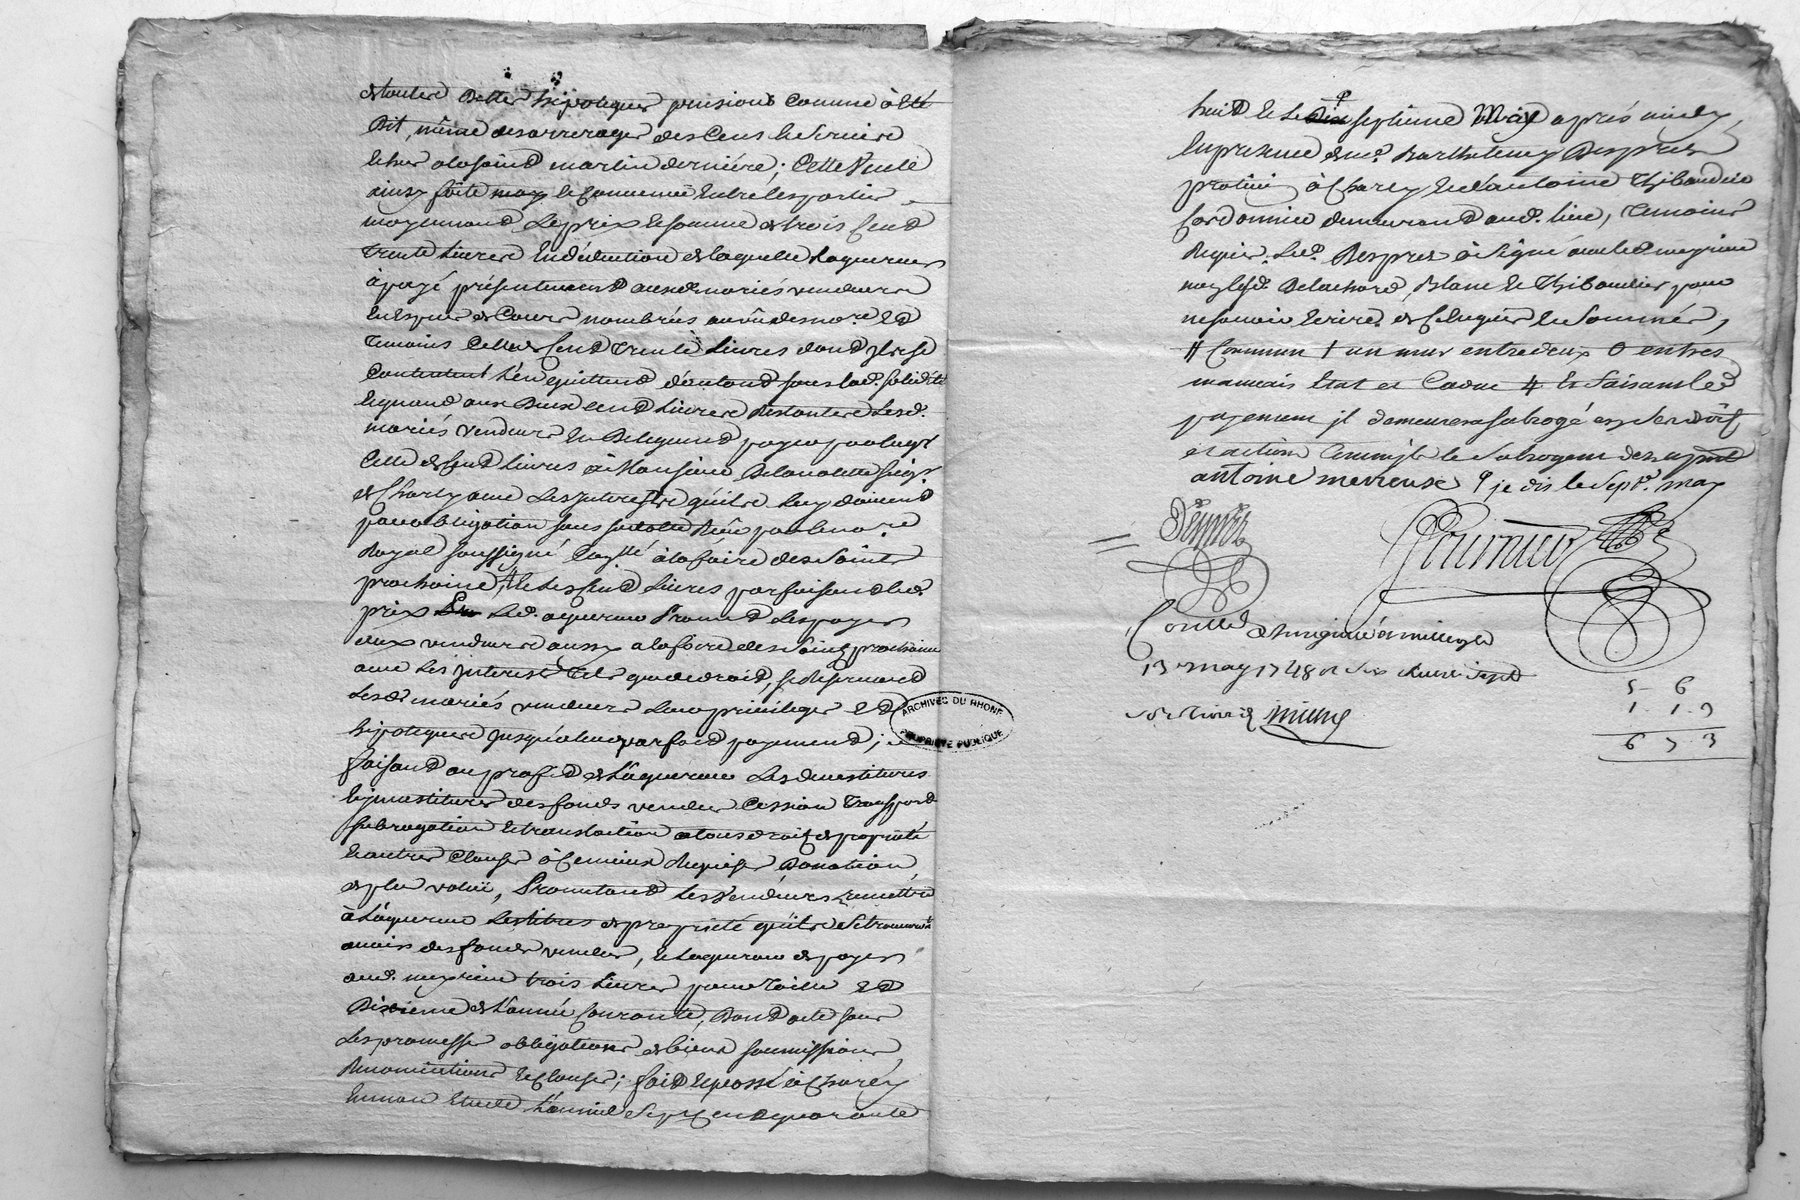 et toutes dettes hipoteques pensions comme a été
dit, même des arrerages des Cens le Servis
echus a la saint martin derniére; Cette Vente
ainsy faite entre les parties
moyennant Le prix et somme de trois Cend
trente Livres En déduction de laquelle Laquereur
à payé présentement auxd. mariés vendeurs
En Espece de Cours nombrées au vû des no.re Et
Temoins Celle de Cend trente Livres dond
Contentent L'en quittent sous lad. solidité
Equand aux Deux Cend Livres Restantes Lesd.
mariés vendeurs En Deleguent payer par luy
Celle de Cend Livres à Monsieur Delarolette seig.r
de Charly avec Les Interets qu'ils Luy doivent
par obligation sous sa datte Reçûe par le no.re
Royal soussigné à la foire des Saints
prochaine, Et Les Cend Livres parfaisand led.
prix Led. aquereur Promet Les payer
aux vendeurs aussy a la foire des Saints prochaine
avec Les Interets Tels que de droit, se Reservand
Lesd. mariés vendeurs Leur privilege Et
hipoteques Jusqu'a leur parfait payement;
faisant au profit de L'aquereur Les devestitures
Investitures des fonds vendus Cession Transport
subrogation Et translation a tous droits de propriété
Et autres Clauses à Ce mieux Requises Donation
de plus value, Promettand Les Vendeurs Remettre
à L'aquereur Les titres de propriété qu'ils se trouveront
avoir des fonds vendus, Et Laquereur de payer
aud. meyrieux trois Livres pour Taille Et
Dixieme de L'année Courante, Dond acte sous
Les promesses obligations de biens soumissions
Renonciations Et Clauses; fait Et passé à Charly
En mon Etude L'an mil Sept Cen quarante
huit Et Le septieme May après midy,
En presence de m.e Barthelemy Despres
praticien à Charly Et d'antoine Thibaudier
Cordonnier demeurand aud. lieu, Temoins
Requis. Led. Despres à signé avec led. meyrieux
non lesd. Delachard, Blanc Et Thibaudier pour
ne savoir Ecrire de Ce Enquis Et Sommés,
Commun † un mur entredeux O entres
mauvais Etat et Caduc # Et faisant led
payement il demeurera subrogé en Ses droits
et actions
antoine mereieux je dis le Sept.e may
Despres
Fournier
Conllé Et insinué
13 may 1748 et six Livres sept
Sols trois d
5 6
1 1 3
6 7 3
ARCHIVES DU RHONE
PROPRIÉTÉ PUBLIQUE